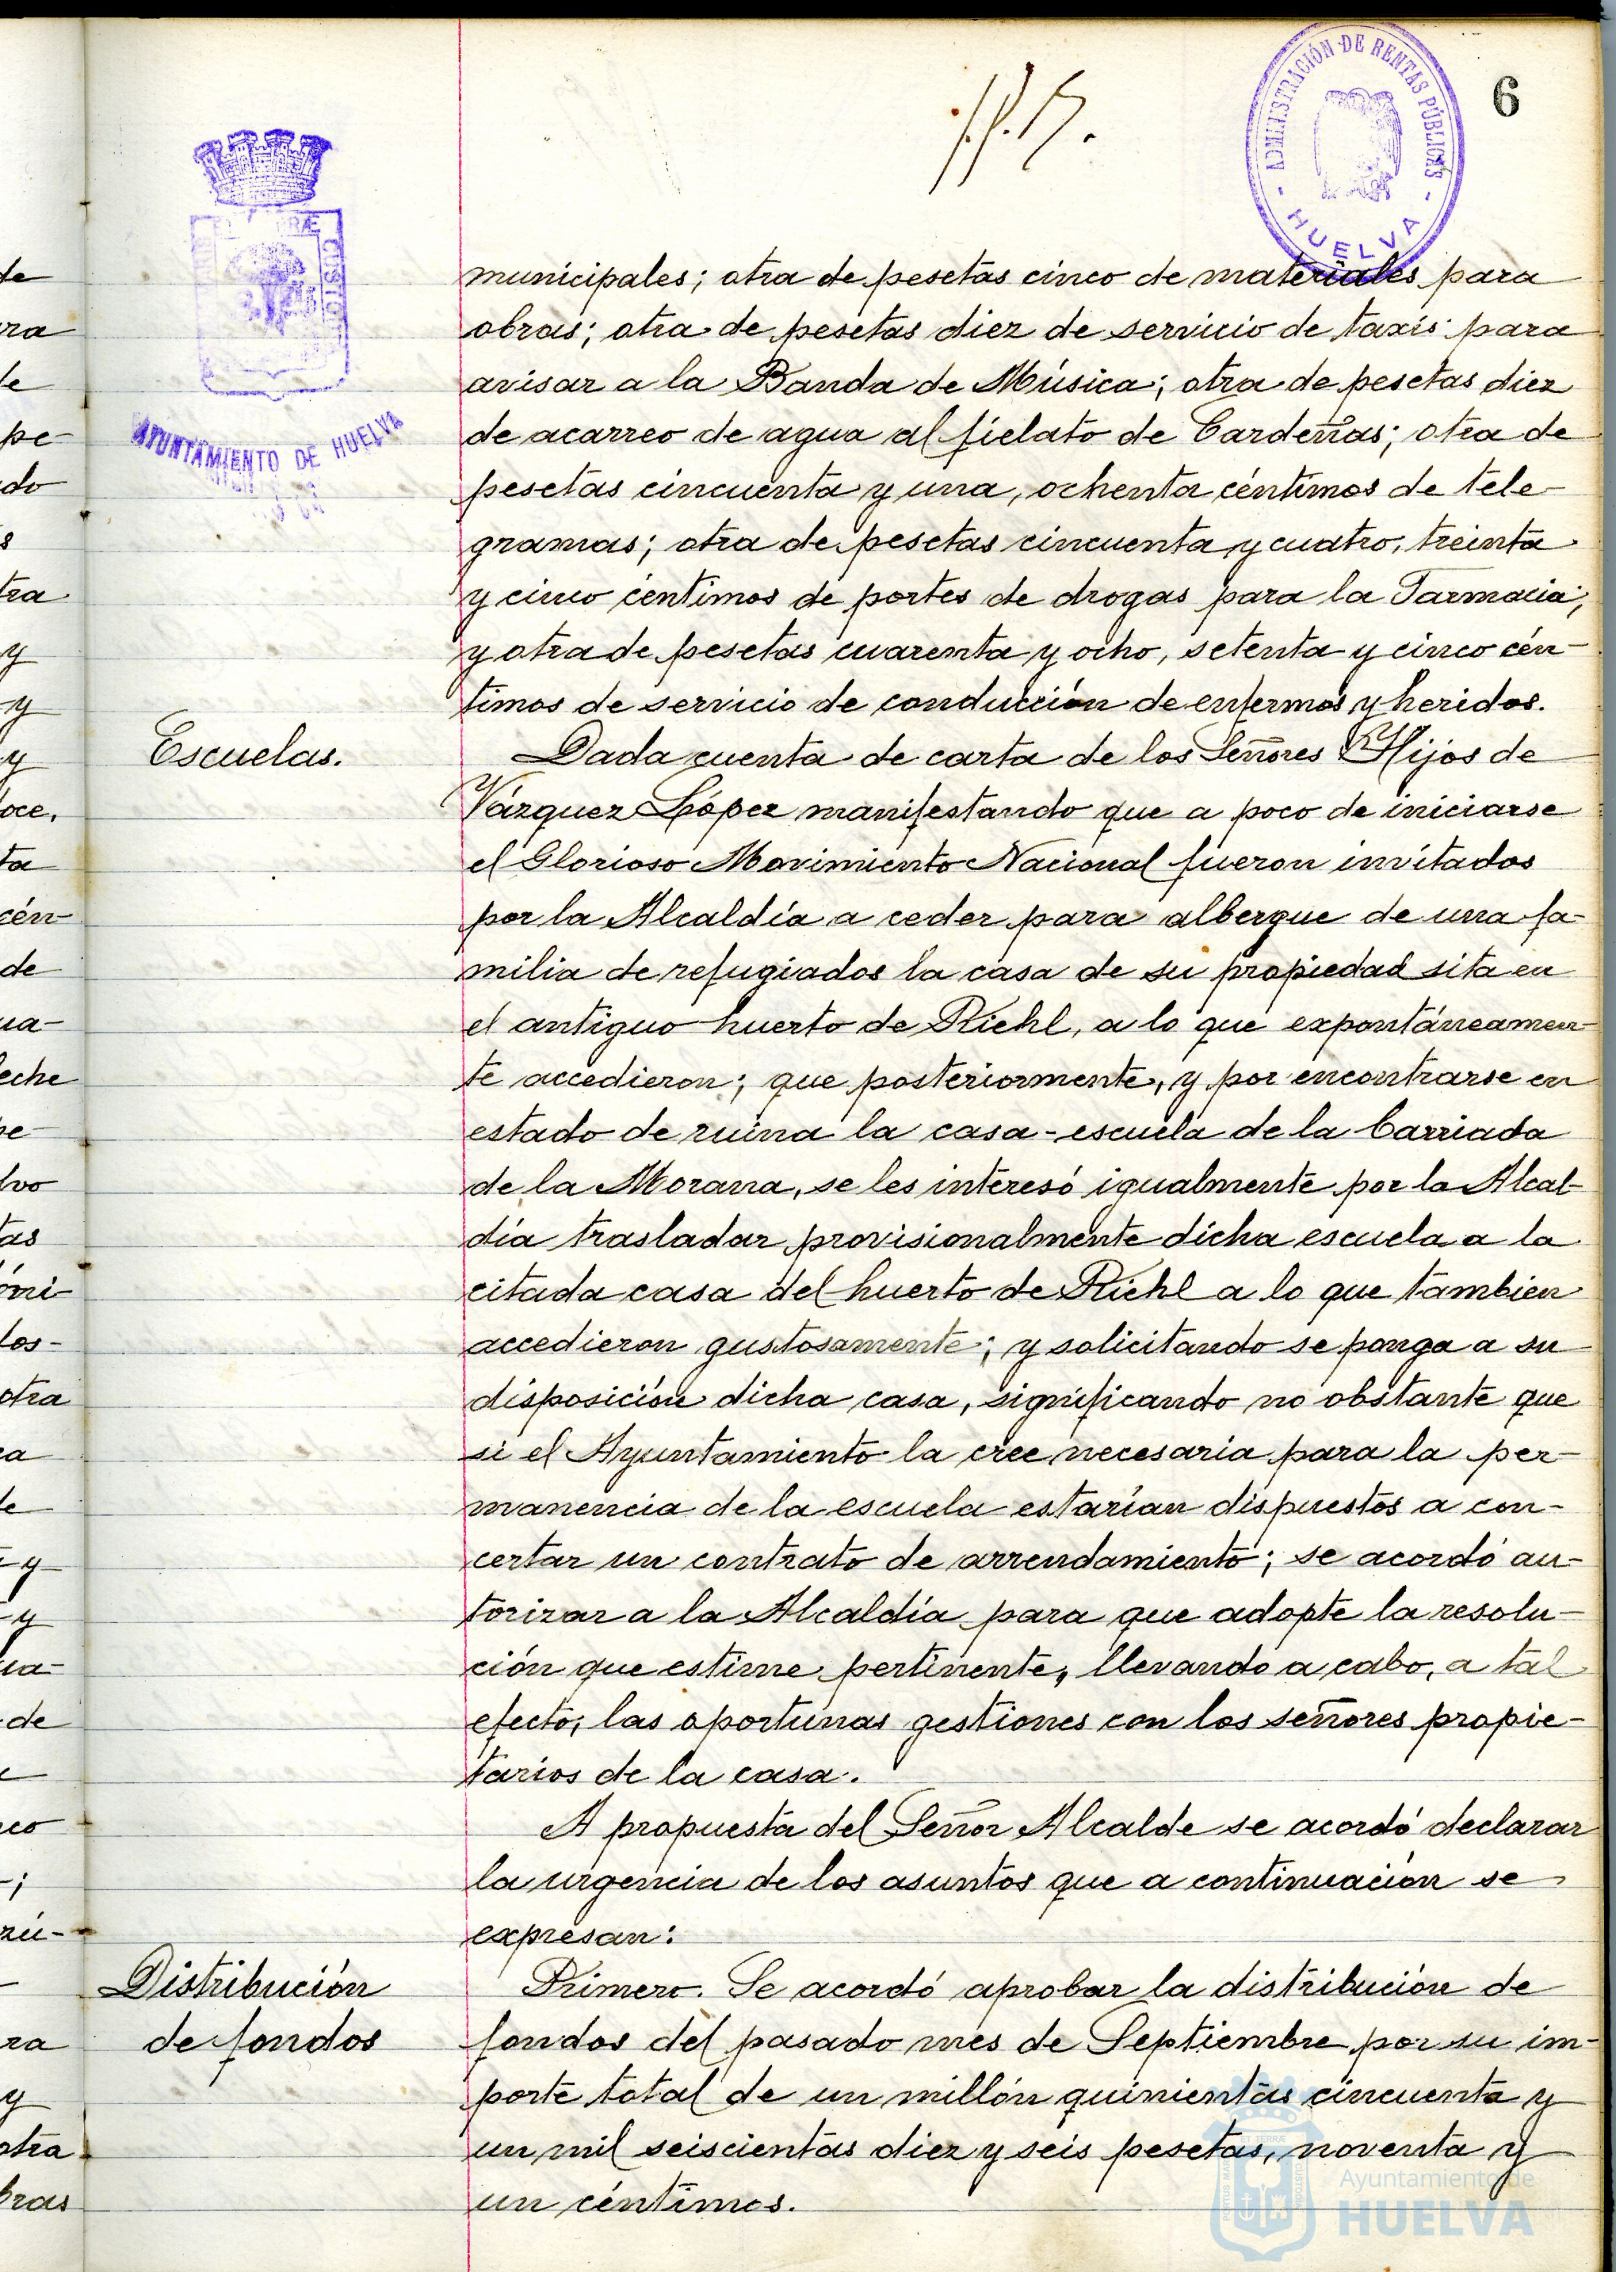 6
ADMINISTRACIÓN DE RENTAS PÚBLICAS
- HUELVA -
AYUNTAMIENTO DE HUELVA
municipales; otra de pesetas cinco de materiales para
obras; otra de pesetas diez de servicio de taxis para
avisar a la Banda de Música; otra de pesetas diez
de acarreo de agua al fielato de Cardeñas; otra de
pesetas cincuenta y una, ochenta céntimos de tele-
gramas; otra de pesetas cincuenta y cuatro, treinta
y cinco céntimos de portes de drogas para la Farmacia;
y otra de pesetas cuarenta y ocho, setenta y cinco cén-
timos de servicio de conducción de enfermos y heridos.
Escuelas.
Dada cuenta de carta de los Señores Hijos de
Vázquez López manifestando que a poco de iniciarse
el Glorioso Movimiento Nacional fueron invitados
por la Alcaldía a ceder para albergue de una fa-
milia de refugiados la casa de su propiedad sita en
el antiguo huerto de Riehl, a lo que expontáneamen-
te accedieron; que posteriormente, y por encontrarse en
estado de ruina la casa-escuela de la barriada
de la Morana, se les interesó igualmente por la Alcal-
día trasladar provisionalmente dicha escuela a la
citada casa del huerto de Riehl a lo que tambien
accedieron gustosamente; y solicitando se ponga a su
disposición dicha casa, significando no obstante que
si el Ayuntamiento la cree necesaria para la per-
manencia de la escuela estarían dispuestos a con-
certar un contrato de arrendamiento; se acordó au-
torizar a la Alcaldía para que adopte la resolu-
ción que estime pertinente, llevando a cabo, a tal
efecto, las oportunas gestiones con los señores propie-
tarios de la casa.
A propuesta del Señor Alcalde se acordó declarar
la urgencia de los asuntos que a continuación se
expresan:
Distribución
de fondos
Primero. Se acordó aprobar la distribución de
fondos del pasado mes de Septiembre por su im-
porte total de un millón quinientas cincuenta y
un mil seiscientas diez y seis pesetas, noventa y
un céntimos.
Ayuntamiento de
HUELVA